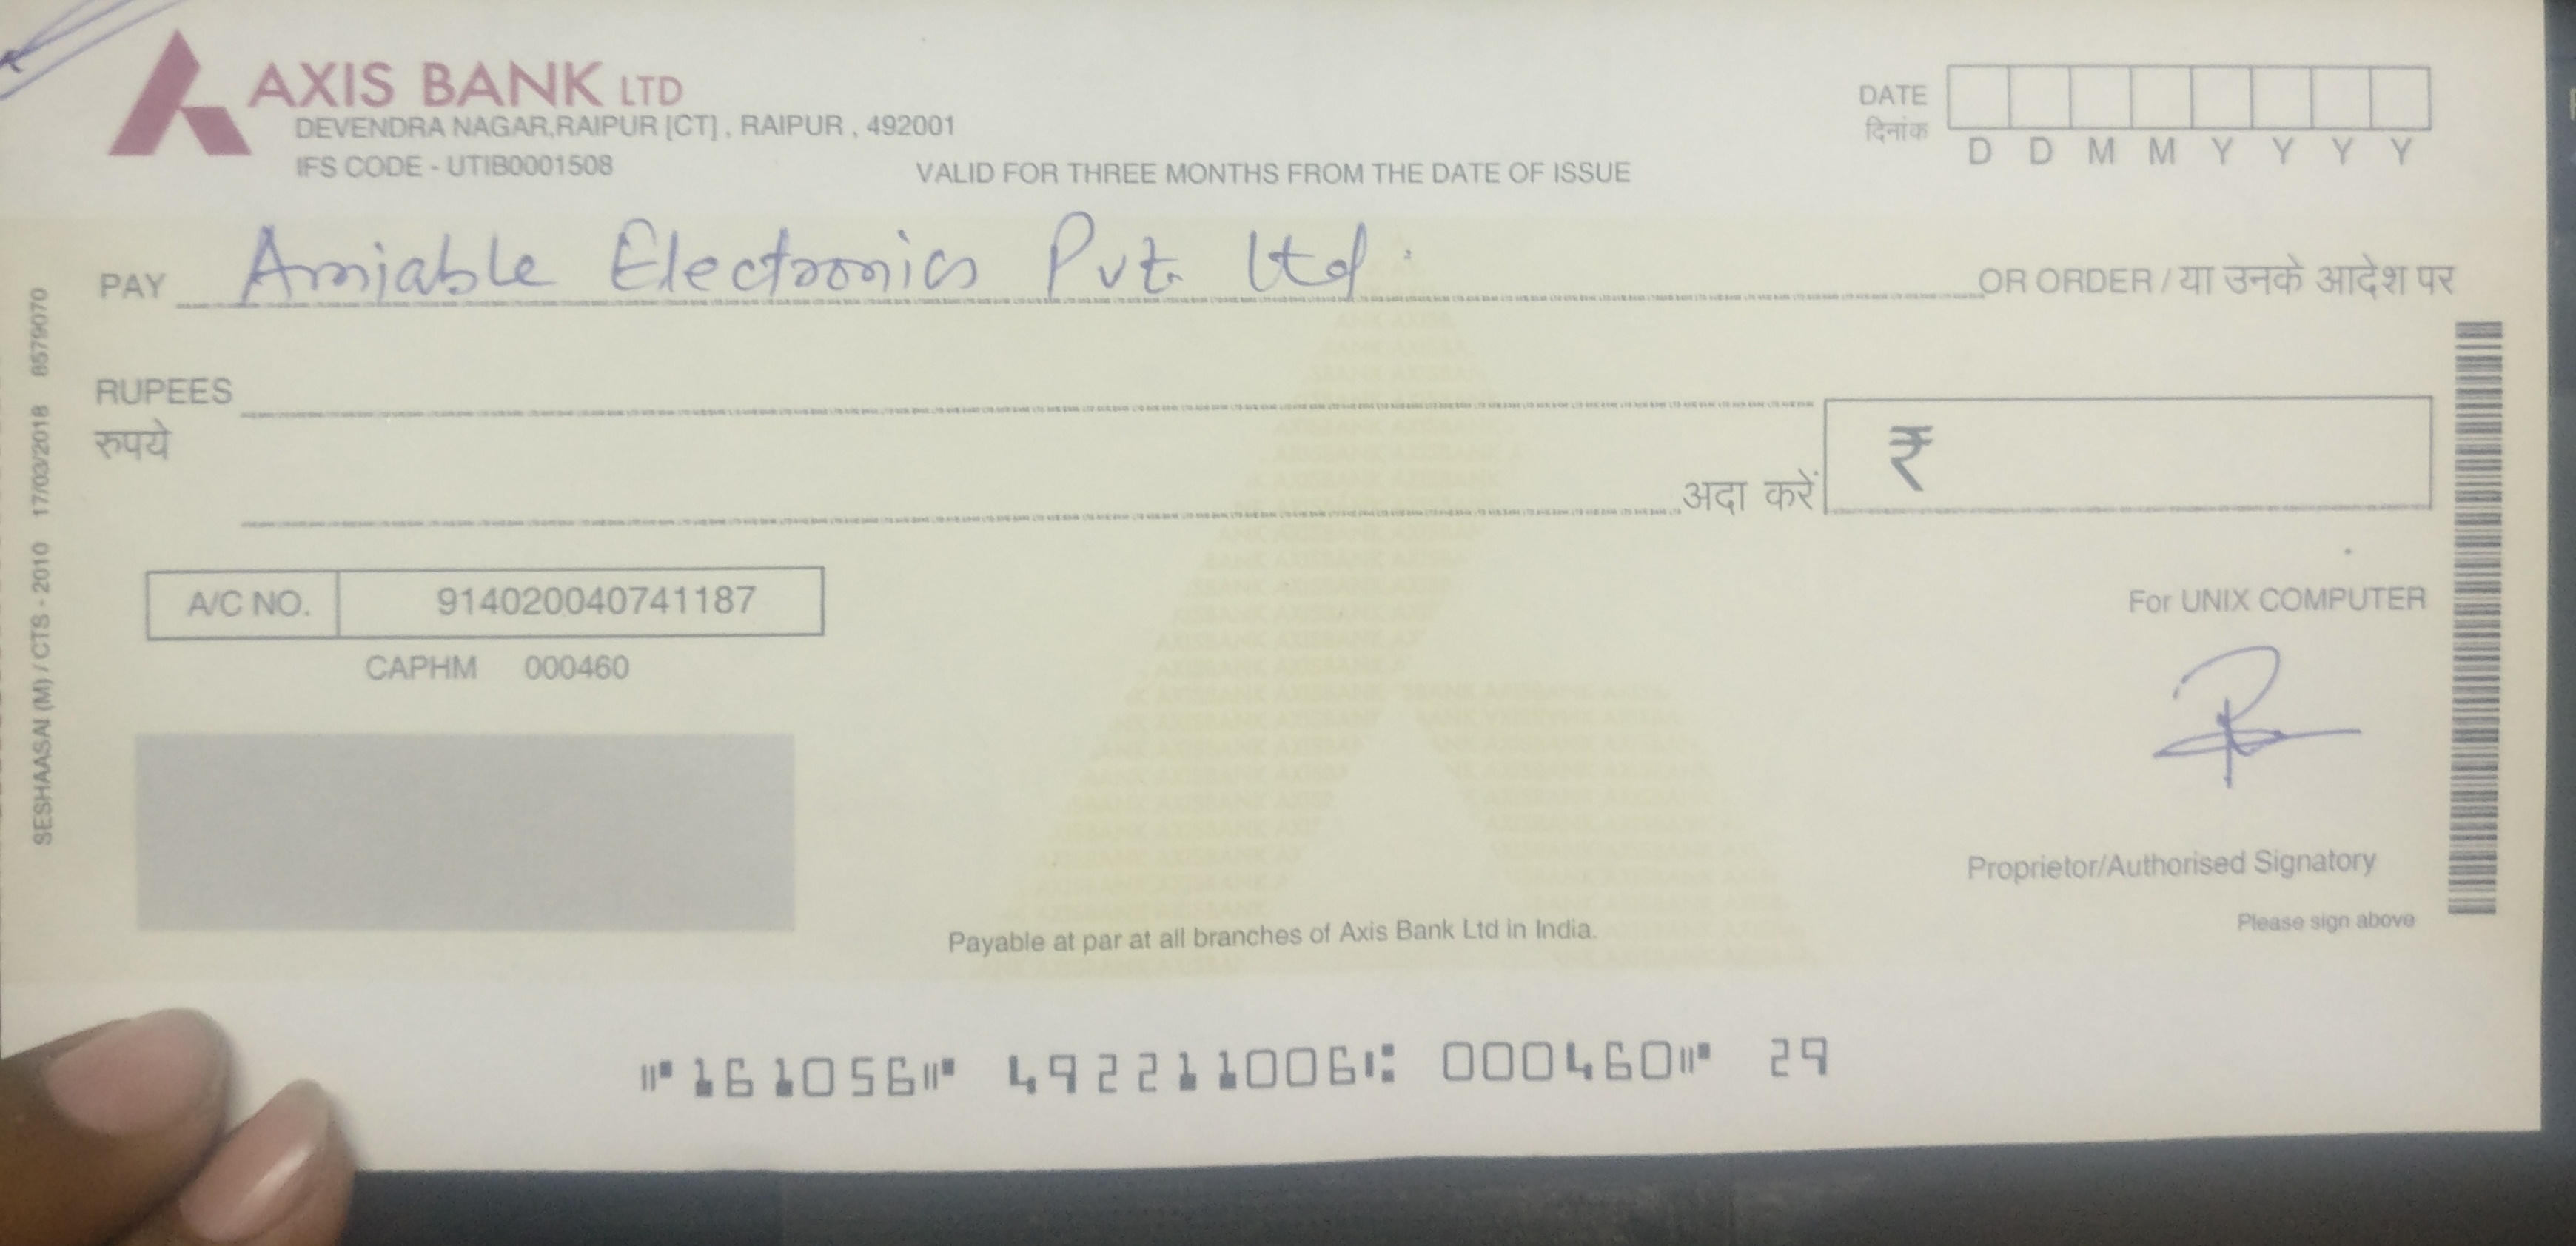 AXIS BANK LTD
DEVENDRA NAGAR,RAIPUR [CT] , RAIPUR , 492001
IFS CODE - UTIB0001508
VALID FOR THREE MONTHS FROM THE DATE OF ISSUE
DATE
दिनांक
D D M M Y Y Y Y
PAY Amiable Electronics Pvt. Ltd. OR ORDER / या उनके आदेश पर
RUPEES
रुपये
अदा करें ₹
A/C NO. 914020040741187
CAPHM 000460
For UNIX COMPUTER
Proprietor/Authorised Signatory
Please sign above
Payable at par at all branches of Axis Bank Ltd in India.
SESHAASAI (M) / CTS - 2010 17/03/2018 8579070
⑈161056⑈ 492211006⑆ 000460⑈ 29